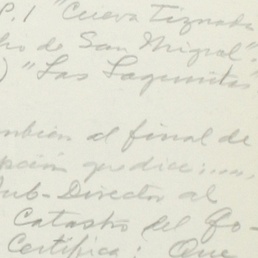 P. 1 "Cueva Tiznada
de San Miguel".
) "Las Lagunitas"
también al final de
pción que dice: ....,
Sub-Director al
Catastro del Go-
Certifica: Que